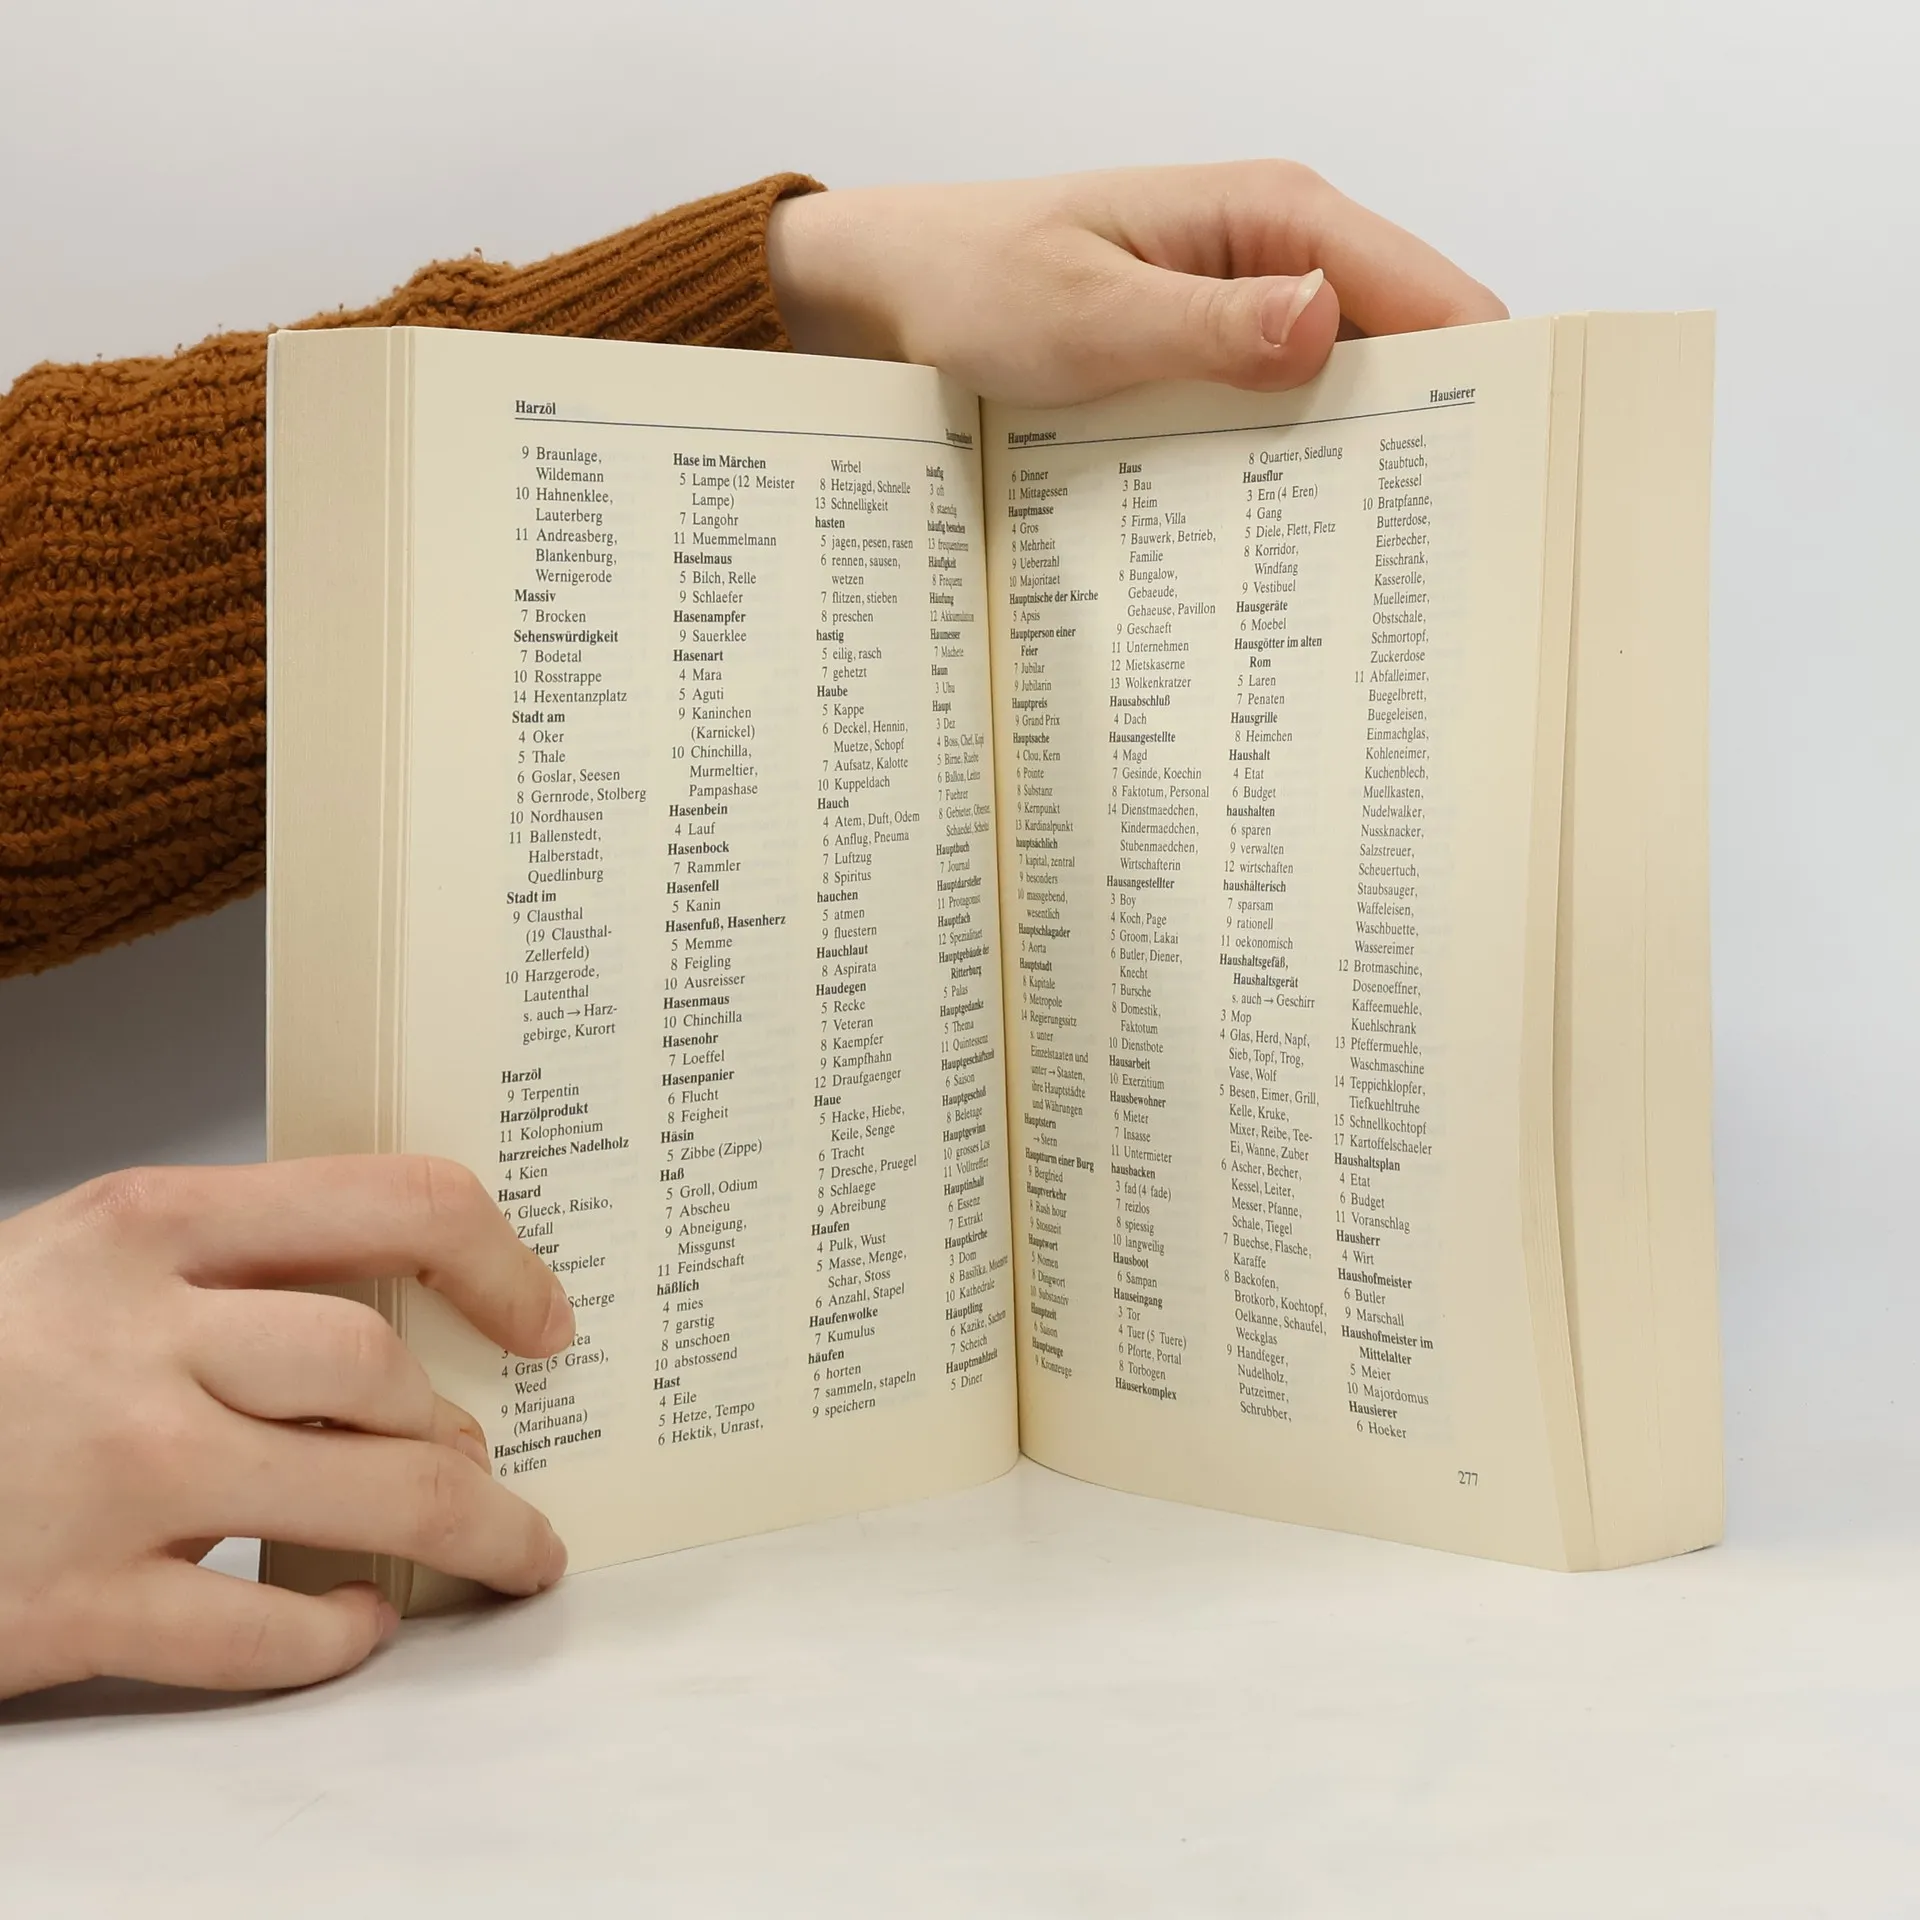 Harzöl
9 Braunlage,
Wildemann
10 Hahnenklee,
Lauterberg
11 Andreasberg,
Blankenburg,
Wernigerode
Massiv
7 Brocken
Sehenswürdigkeit
7 Bodetal
10 Rosstrappe
14 Hexentanzplatz
Stadt am
4 Oker
5 Thale
6 Goslar, Seesen
8 Gernrode, Stolberg
10 Nordhausen
11 Ballenstedt,
Halberstadt,
Quedlinburg
Stadt im
9 Clausthal
(19 Clausthal-
Zellerfeld)
10 Harzgerode,
Lautenthal
s. auch → Harz-
gebirge, Kurort
Harzöl
9 Terpentin
Harzölprodukt
11 Kolophonium
harzreiches Nadelholz
4 Kien
Hasard
6 Glueck, Risiko,
Zufall
Scherge
4 Gras (5 Grass),
Weed
9 Marijuana
(Marihuana)
Haschisch rauchen
6 kiffen
Hase im Märchen
5 Lampe (12 Meister
Lampe)
7 Langohr
11 Muemmelmann
Haselmaus
5 Bilch, Relle
9 Schlaefer
Hasenampfer
9 Sauerklee
Hasenart
4 Mara
5 Aguti
9 Kaninchen
(Karnickel)
10 Chinchilla,
Murmeltier,
Pampashase
Hasenbein
4 Lauf
Hasenbock
7 Rammler
Hasenfell
5 Kanin
Hasenfuß, Hasenherz
5 Memme
8 Feigling
10 Ausreisser
Hasenmaus
10 Chinchilla
Hasenohr
7 Loeffel
Hasenpanier
6 Flucht
8 Feigheit
Häsin
5 Zibbe (Zippe)
Haß
5 Groll, Odium
7 Abscheu
9 Abneigung,
Missgunst
11 Feindschaft
häßlich
4 mies
7 garstig
8 unschoen
10 abstossend
Hast
4 Eile
5 Hetze, Tempo
6 Hektik, Unrast,
Wirbel
8 Hetzjagd, Schnelle
13 Schnelligkeit
hasten
5 jagen, pesen, rasen
6 rennen, sausen,
wetzen
7 flitzen, stieben
8 preschen
hastig
5 eilig, rasch
7 gehetzt
Haube
5 Kappe
6 Deckel, Hennin,
Muetze, Schopf
7 Aufsatz, Kalotte
10 Kuppeldach
Hauch
4 Atem, Duft, Odem
6 Anflug, Pneuma
7 Luftzug
8 Spiritus
hauchen
5 atmen
9 fluestern
Hauchlaut
8 Aspirata
Haudegen
5 Recke
7 Veteran
8 Kaempfer
9 Kampfhahn
12 Draufgaenger
Haue
5 Hacke, Hiebe,
Keile, Senge
6 Tracht
7 Dresche, Pruegel
8 Schlaege
9 Abreibung
Haufen
4 Pulk, Wust
5 Masse, Menge,
Schar, Stoss
6 Anzahl, Stapel
Haufenwolke
7 Kumulus
häufen
6 horten
7 sammeln, stapeln
9 speichern
häufig
3 oft
8 staendig
häufig besuchen
13 frequentieren
Häufigkeit
8 Frequenz
Häufung
12 Akkumulation
Haumesser
7 Machete
Haun
3 Uhu
Haupt
3 Dez
4 Boss, Chef, Kopf
5 Birne, Ruebe
6 Ballon, Leiter
7 Fuehrer
8 Gebieter,
Schaedel,
Hauptbuch
7 Journal
Hauptdarsteller
11 Protagonist
Hauptfach
12 Spezialitaet
Hauptgebäude der
Ritterburg
5 Palas
Hauptgedanke
5 Thema
11 Quintessenz
Hauptgeschäftszeit
6 Saison
Hauptgeschoß
8 Beletage
Hauptgewinn
10 grosses Los
11 Volltreffer
Hauptinhalt
6 Essenz
7 Extrakt
Hauptkirche
3 Dom
8 Basilika, Muenster
10 Kathedrale
Häuptling
6 Kazike, Sachem
7 Scheich
Hauptmahlzeit
5 Diner
Hauptmasse Hausierer
6 Dinner
11 Mittagessen
Hauptmasse
4 Gros
8 Mehrheit
9 Ueberzahl
10 Majoritaet
Hauptnische der Kirche
5 Apsis
Hauptperson einer
Feier
7 Jubilar
9 Jubilarin
Hauptpreis
9 Grand Prix
Hauptsache
4 Clou, Kern
6 Pointe
8 Substanz
9 Kernpunkt
13 Kardinalpunkt
hauptsächlich
7 kapital, zentral
9 besonders
10 massgebend,
wesentlich
Hauptschlagader
5 Aorta
Hauptstadt
8 Kapitale
9 Metropole
14 Regierungssitz
s. unter
Einzelstaaten und
unter → Staaten,
ihre Hauptstädte
und Währungen
Hauptstern
→ Stern
Hauptturm einer Burg
9 Bergfried
Hauptverkehr
8 Rush hour
9 Stosszeit
Hauptwort
5 Nomen
8 Dingwort
10 Substantiv
Hauptzeit
6 Saison
Hauptzeuge
9 Kronzeuge
Haus
3 Bau
4 Heim
5 Firma, Villa
7 Bauwerk, Betrieb,
Familie
8 Bungalow,
Gebaeude,
Gehaeuse, Pavillon
9 Geschaeft
11 Unternehmen
12 Mietskaserne
13 Wolkenkratzer
Hausabschluß
4 Dach
Hausangestellte
4 Magd
7 Gesinde, Koechin
8 Faktotum, Personal
14 Dienstmaedchen,
Kindermaedchen,
Stubenmaedchen,
Wirtschafterin
Hausangestellter
3 Boy
4 Koch, Page
5 Groom, Lakai
6 Butler, Diener,
Knecht
7 Bursche
8 Domestik,
Faktotum
10 Dienstbote
Hausarbeit
10 Exerzitium
Hausbewohner
6 Mieter
7 Insasse
11 Untermieter
hausbacken
3 fad (4 fade)
7 reizlos
8 spiessig
10 langweilig
Hausboot
6 Sampan
Hauseingang
3 Tor
4 Tuer (5 Tuere)
6 Pforte, Portal
8 Torbogen
Häuserkomplex
8 Quartier, Siedlung
Hausflur
3 Ern (4 Eren)
4 Gang
5 Diele, Flett, Fletz
8 Korridor,
Windfang
9 Vestibuel
Hausgeräte
6 Moebel
Hausgötter im alten
Rom
5 Laren
7 Penaten
Hausgrille
8 Heimchen
Haushalt
4 Etat
6 Budget
haushalten
6 sparen
9 verwalten
12 wirtschaften
haushälterisch
7 sparsam
9 rationell
11 oekonomisch
Haushaltsgefäß,
Haushaltsgerät
s. auch → Geschirr
3 Mop
4 Glas, Herd, Napf,
Sieb, Topf, Trog,
Vase, Wolf
5 Besen, Eimer, Grill,
Kelle, Kruke,
Mixer, Reibe, Tee-
Ei, Wanne, Zuber
6 Ascher, Becher,
Kessel, Leiter,
Messer, Pfanne,
Schale, Tiegel
7 Buechse, Flasche,
Karaffe
8 Backofen,
Brotkorb, Kochtopf,
Oelkanne, Schaufel,
Weckglas
9 Handfeger,
Nudelholz,
Putzeimer,
Schrubber,
Schuessel,
Staubtuch,
Teekessel
10 Bratpfanne,
Butterdose,
Eierbecher,
Eisschrank,
Kasserolle,
Muelleimer,
Obstschale,
Schmortopf,
Zuckerdose
11 Abfalleimer,
Buegelbrett,
Buegeleisen,
Einmachglas,
Kohleneimer,
Kuchenblech,
Muellkasten,
Nudelwalker,
Nussknacker,
Salzstreuer,
Scheuertuch,
Staubsauger,
Waffeleisen,
Waschbuette,
Wassereimer
12 Brotmaschine,
Dosenoeffner,
Kaffeemuehle,
Kuehlschrank
13 Pfeffermuehle,
Waschmaschine
14 Teppichklopfer,
Tiefkuehltruhe
15 Schnellkochtopf
17 Kartoffelschaeler
Haushaltsplan
4 Etat
6 Budget
11 Voranschlag
Hausherr
4 Wirt
Haushofmeister
6 Butler
9 Marschall
Haushofmeister im
Mittelalter
5 Meier
10 Majordomus
Hausierer
6 Hoeker
277